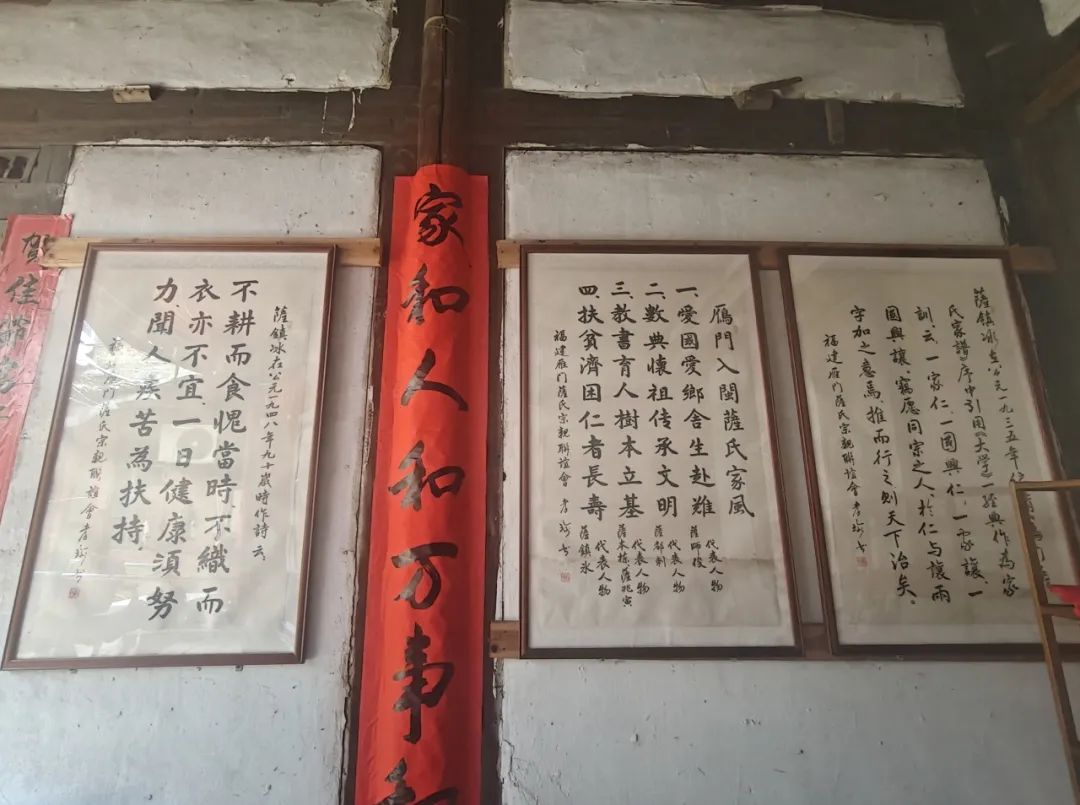 薩鎮冰在公元一九三五年
氏家譜》序中引用《大学》一經典作為家
訓云、一家仁、一國興仁、一家讓、一
國興讓、竊愿同宗之人、於仁与讓兩
字加之意焉推而行之則天下治矣。
福建雁门薩氏宗親聯誼會
雁門入閩薩氏家風
一、愛國愛鄉舍生赴難 代表人物 薩師俊
二、數典懷祖传承文明 代表人物 薩都剌
三、教書育人樹本立基 代表人物 薩本栋薩兆寅
四、扶貧濟困仁者長壽 代表人物 薩鎮冰
福建雁门薩氏宗親聯誼會
家和人和万事和
薩鎮冰在公元一九四八年九十歲時作詩云
不耕而食愧當時、不織而
衣亦不宜、一日健康須努
力、聞人疾苦為扶持、
雁门薩氏宗親聯誼會
賀佳節